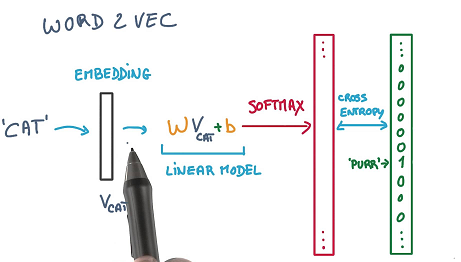 WORD 2 VEC
EMBEDDING
'CAT'
V CAT
W V CAT + b
LINEAR MODEL
SOFTMAX
CROSS
ENTROPY
'PURR'
⋮
0
0
0
0
0
0
1
0
0
0
⋮